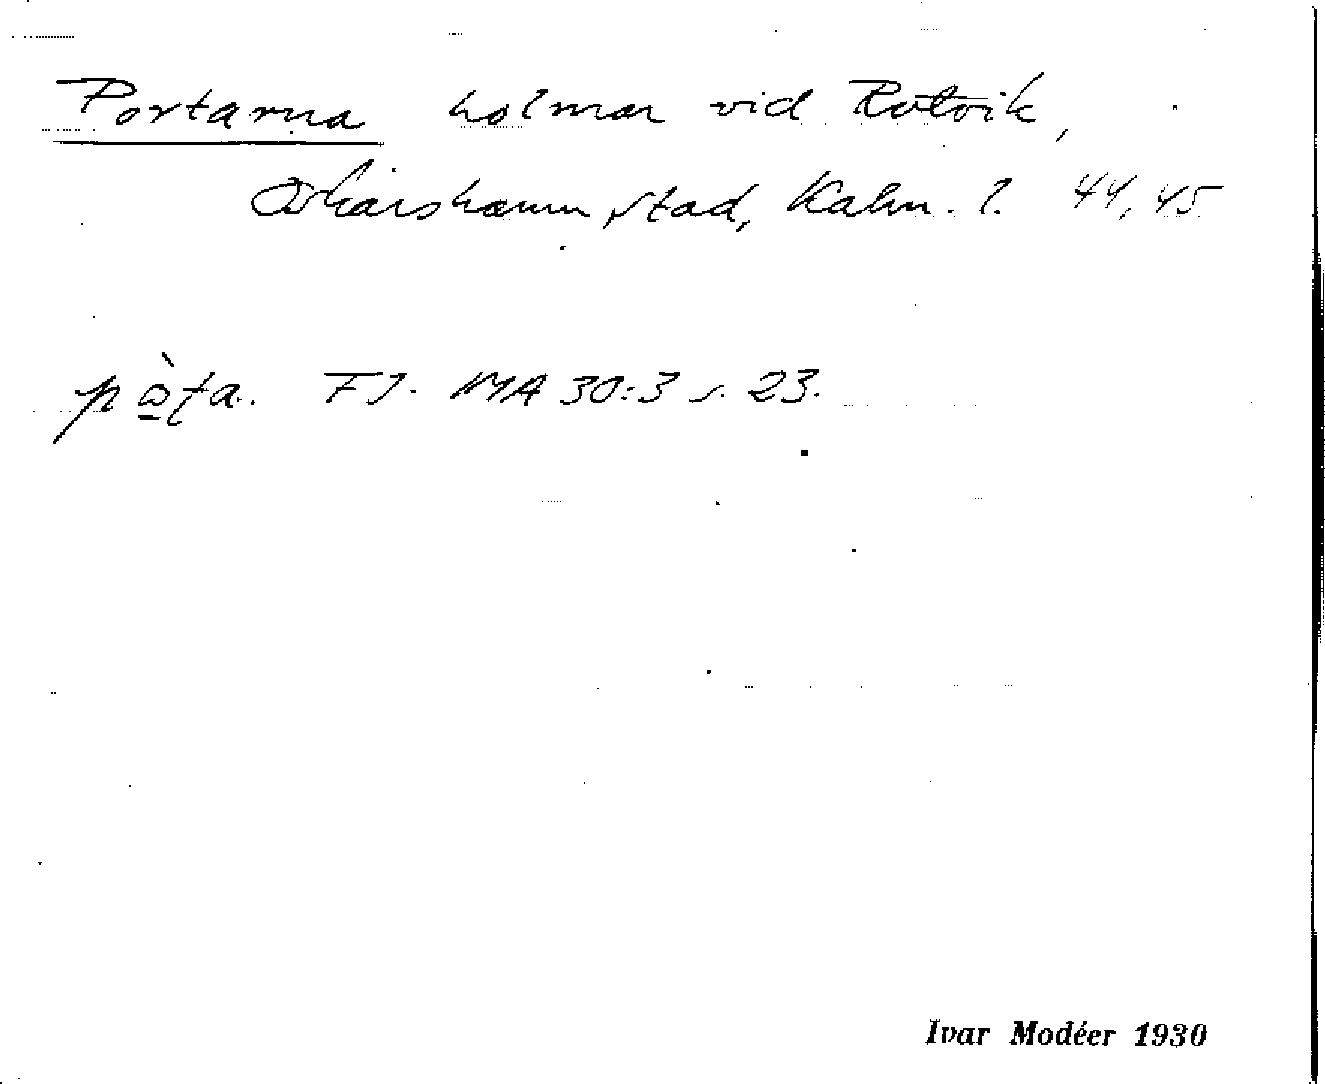 Portarna holmar vid Rotvik,
Oskarshamn stad, Kalm. l. 44, 45
pò̱ʈa. FJ. MA 30:3 s. 23.
Ivar Modéer 1930